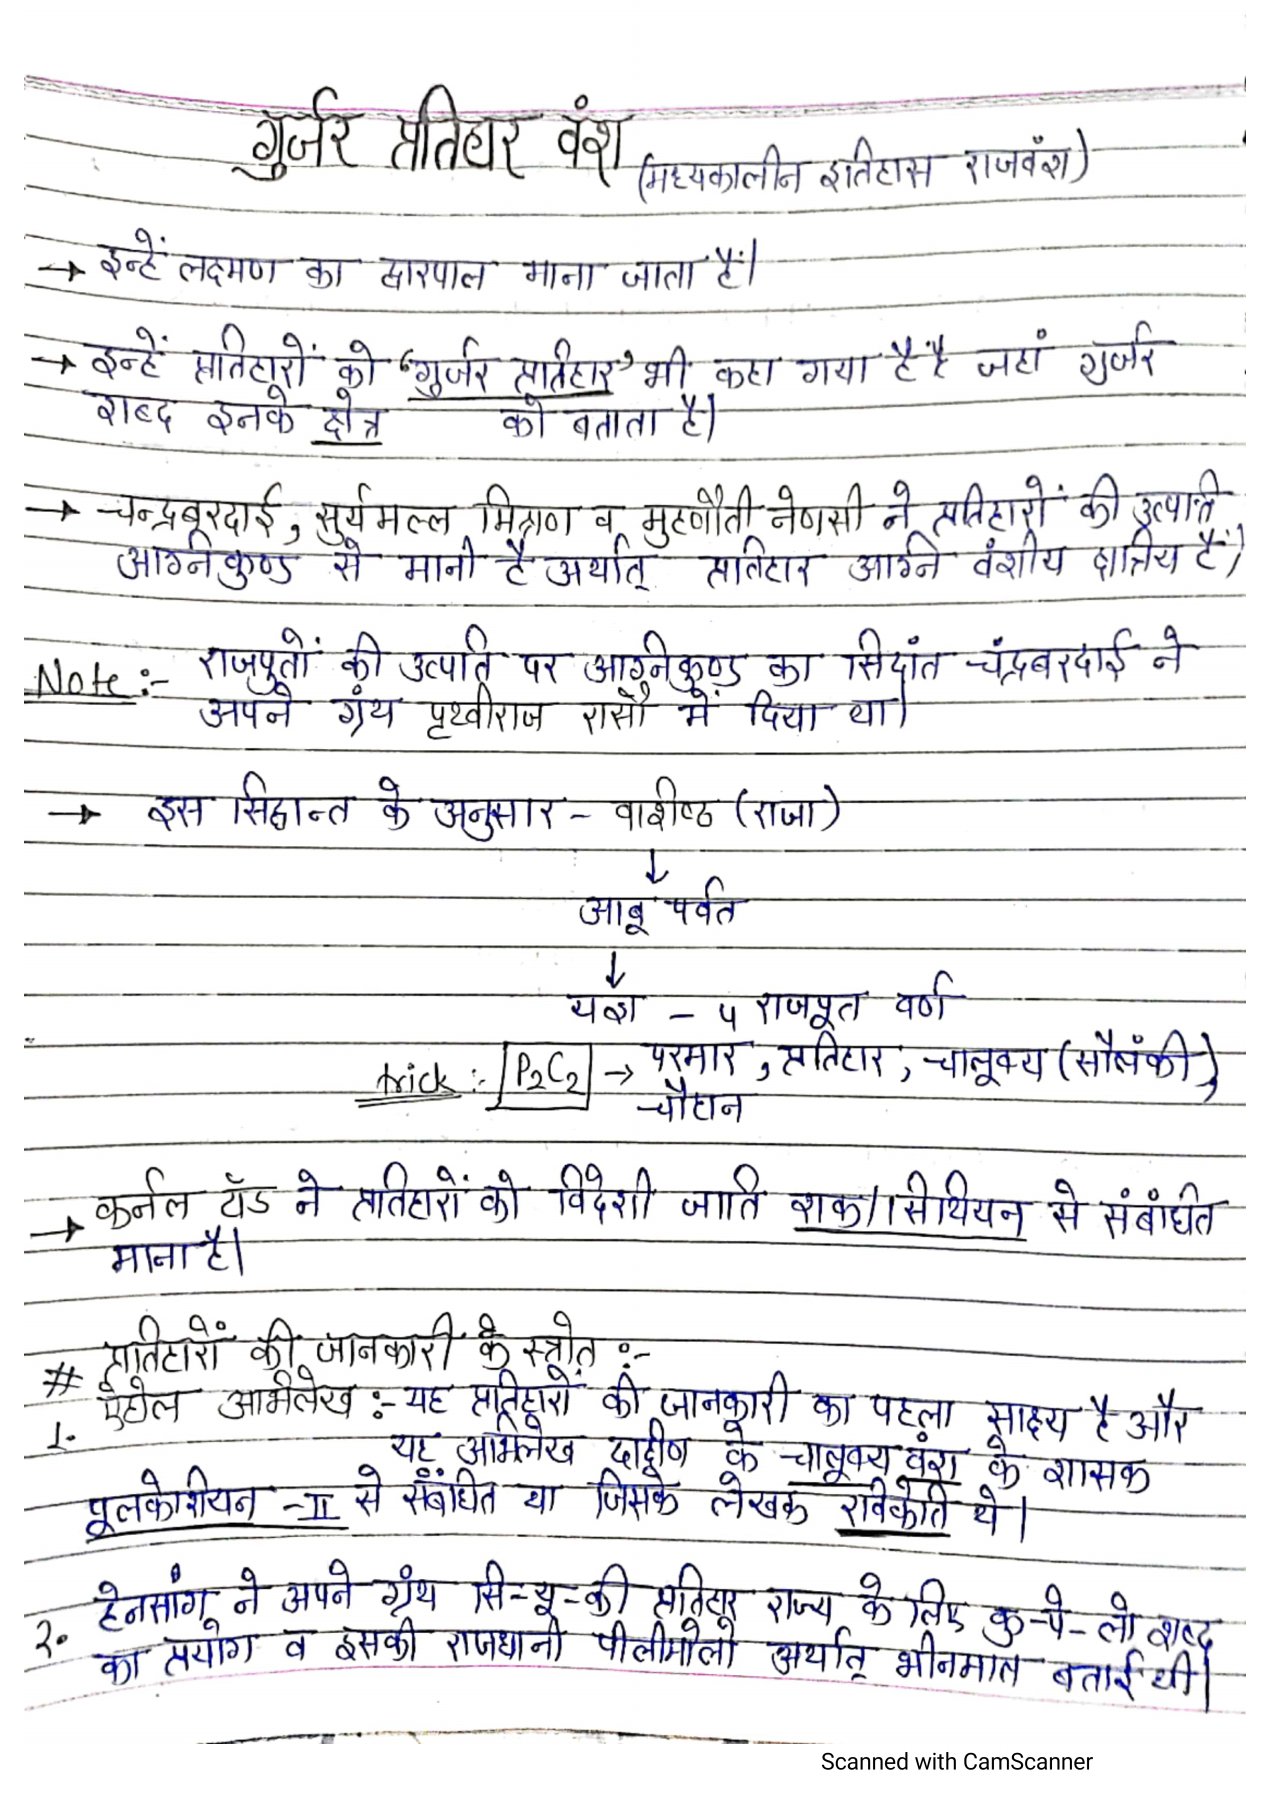 गुर्जर प्रतिहार वंश (मध्यकालीन इतिहास राजवंश)
→ इन्हें लक्ष्मण का द्वारपाल माना जाता है।
→ इन्हें प्रतिहारों को 'गुर्जर प्रतिहार' भी कहा गया है है जहां गुर्जर
शब्द इनके क्षेत्र को बताता है।
→ चन्द्रबरदाई, सुर्यमल्ल मिश्रण व मुहणौती नेणसी ने प्रतिहारों की उत्पत्ति
अग्निकुण्ड से मानी है अर्थात् प्रतिहार अग्नि वंशीय क्षत्रिय हैं।
Note:- राजपुतों की उत्पति पर अग्निकुण्ड का सिदांत चंद्रबरदाई ने
अपने ग्रंथ पृथ्वीराज रासौ में दिया था।
→ इस सिद्धान्त के अनुसार - वाशिष्ठ (राजा)
↓
आबू पर्वत
↓
यज्ञ - 4 राजपूत वर्ण
trick:- P2C2 → परमार, प्रतिहार, चालूक्य (सौलंकी)
चौहान
→ कर्नल टॉड ने प्रतिहारों को विदेशी जाति शक।।सिथियन से संबंधित
माना है।
# प्रतिहारों की जानकारी के स्त्रोत :-
1. ऐहोल अभिलेख :- यह प्रतिहारों की जानकारी का पहला साक्ष्य है और
यह अभिलेख दक्षिण के चालूक्य वंश के शासक
पूलकेशियन -II से संबंधित था जिसके लेखक रविकीर्ति थे।
2. हेनसांग ने अपने ग्रंथ सि-यू-की प्रतिहार राज्य के लिए कु-पे-लो शब्द
का प्रयोग व इसकी राजधानी पीलीमोलो अर्थात् भीनमाल बताई थी।
Scanned with CamScanner